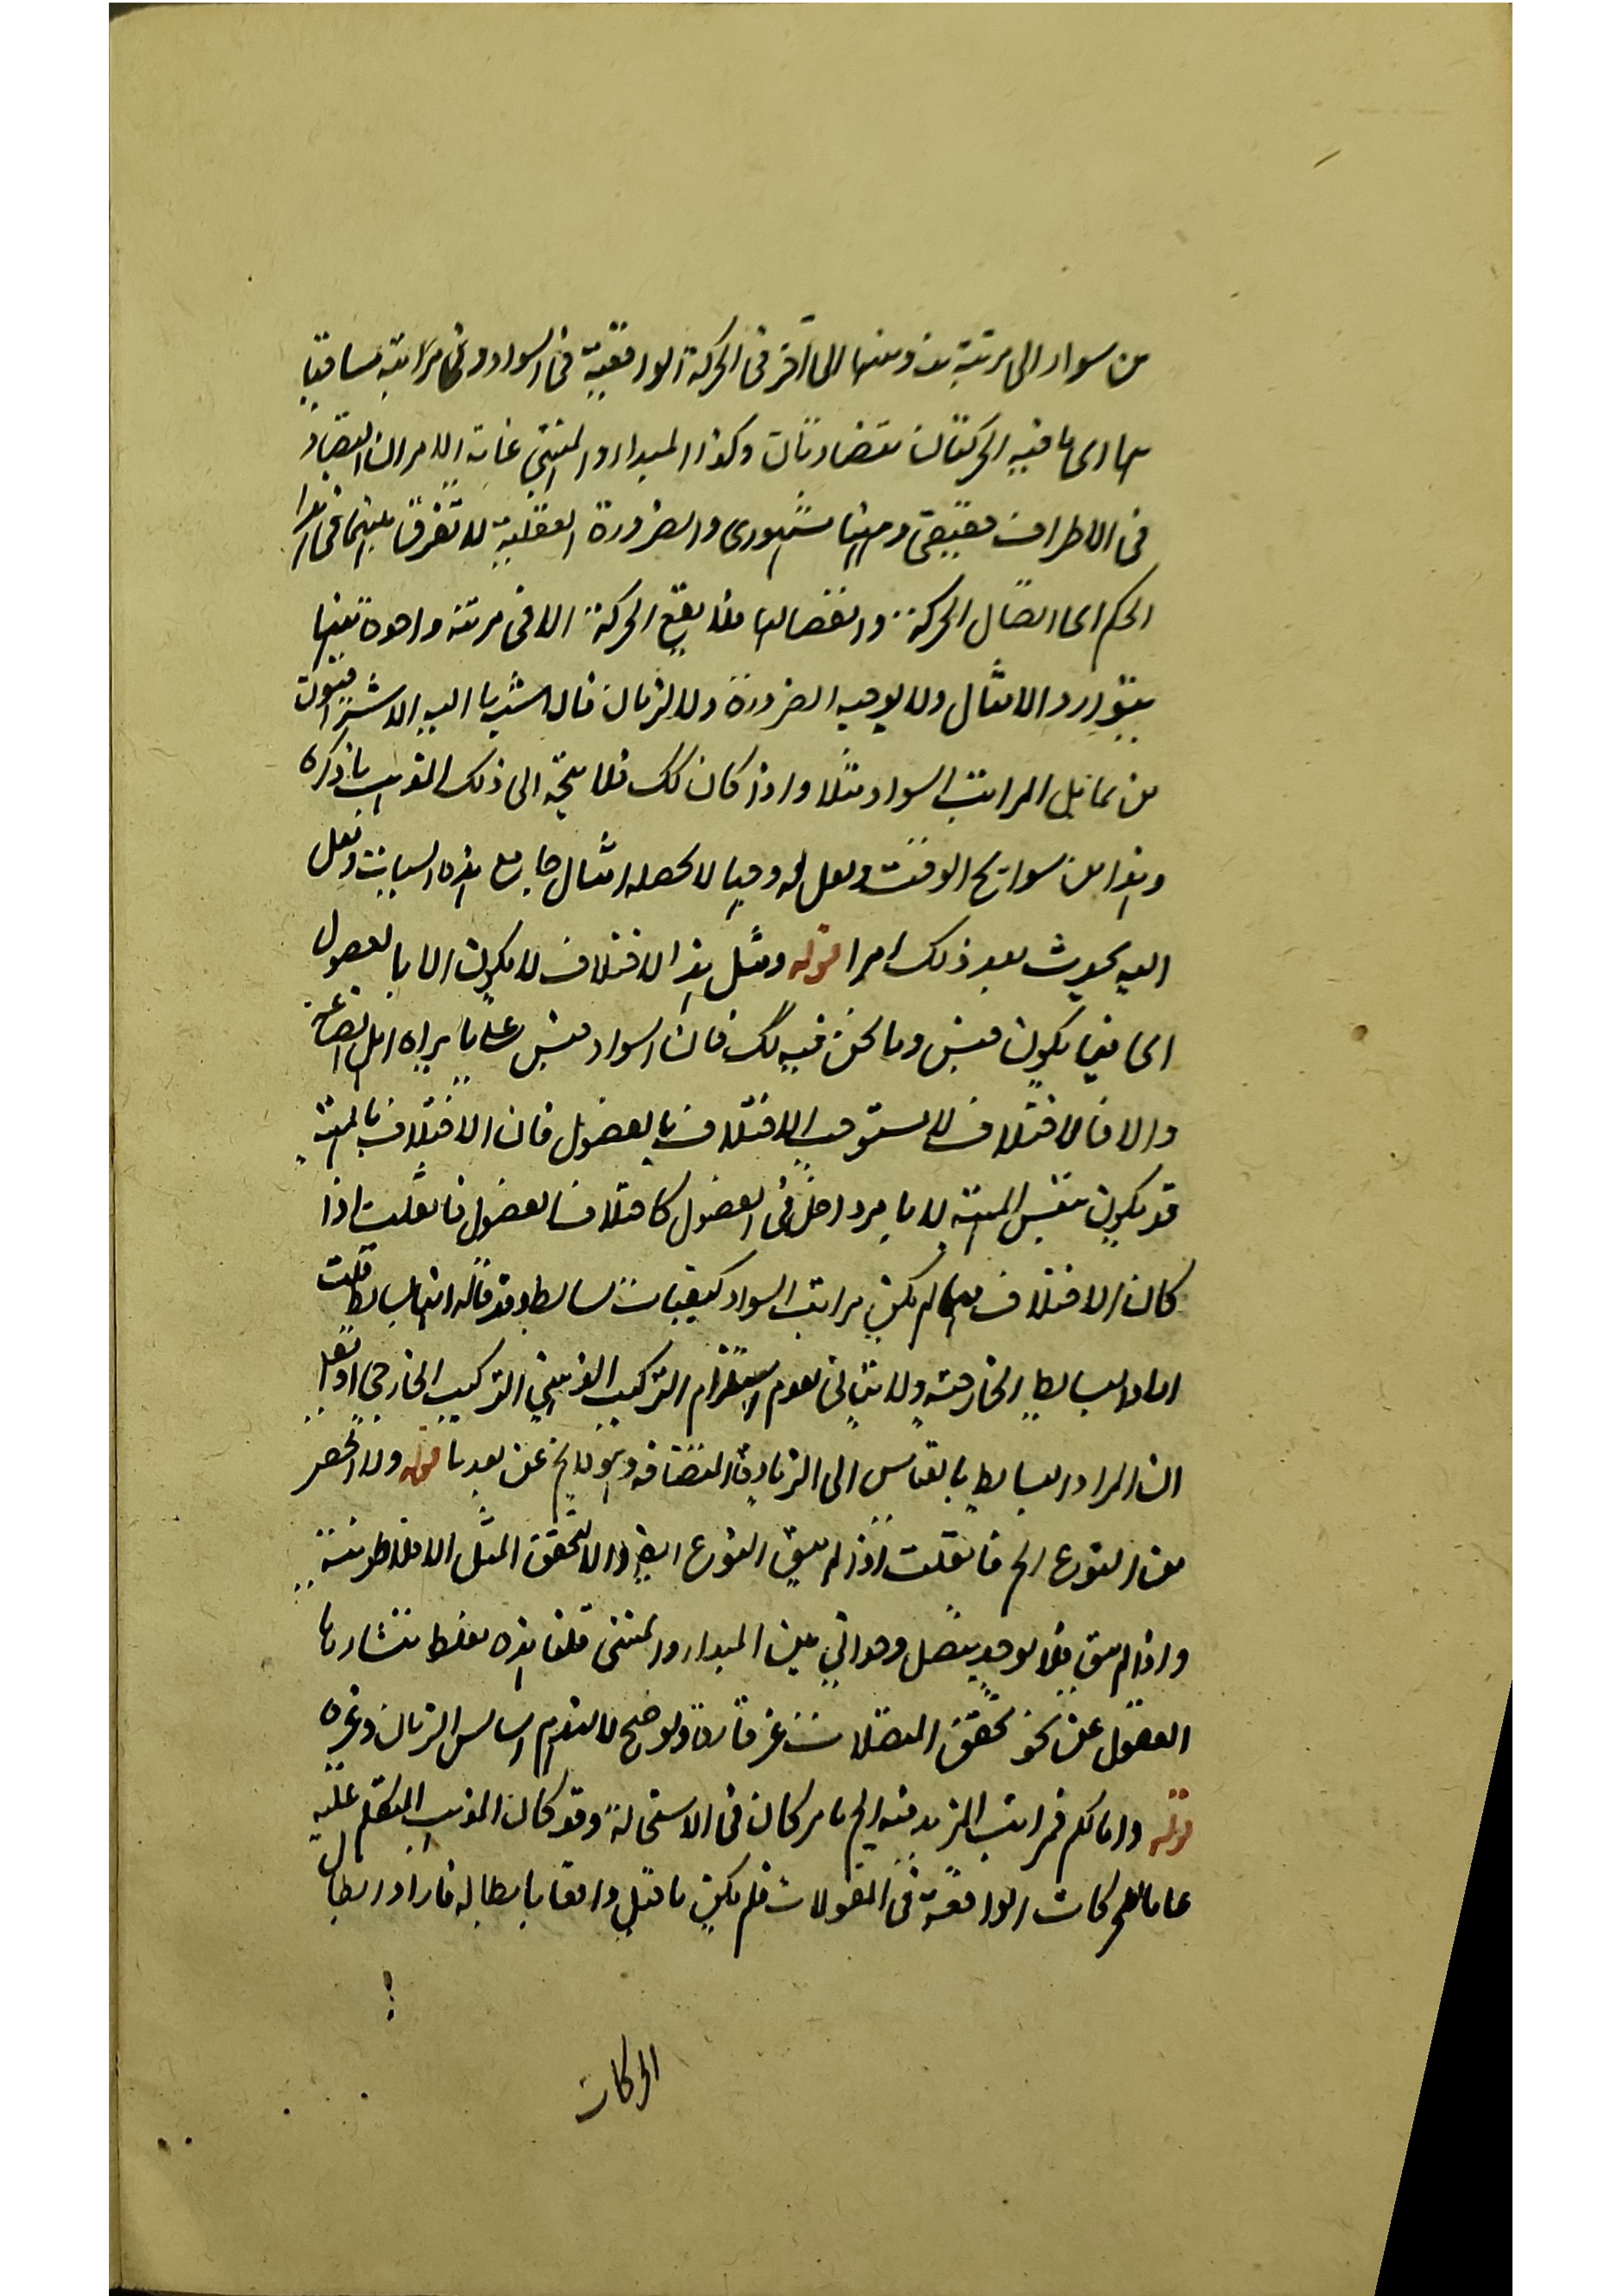 من سواد الى مرتبة منه ومنها الى آخر فى الحركة الواقعية فى السواد وفى مراتبه مسافتها
اى ما فيه الحركتان متضادتان وكذا المبدا والمنتهى غاية الامر ان التضاد
فى الاطراف حقيقى وههنا مشهورى والضرورة العقلية لا تفرق بينهما فى هذا
الحكم اى اتصال الحركة وانفصالها فلا يقع الحركة الا فى مرتبة واحدة بعينها
بتوارد الامثال ولا يوجبه الضرورة ولا البرهان فال اليه الاشراقيون
من تماثل المراتب السواد مثلا واذا كان كك فلا يتجه الى ذلك المذهب ما ذكره
وهذا من سوانح الوقت ولعل له وجها لا يحصله امثال جامع هذه السيات ولعل
الله يحدث بعد ذلك امرا قوله ومثل هذا الاختلاف لا يكون الا بالفصول
اى فيما يكون جنس وما نحن فيه كك فان السواد جنس على ما يراه اهل الصناعة
والا فالاختلاف لا يستوجب الاختلاف بالفصول فان الاختلاف بالمهية
قد يكون بنفس المهية لا بامر داخل فى الفصول كاختلاف الفصول فان قلت اذا
كان الاختلاف بها لم يكن مراتب السواد كيفيات بسائط وقد قال انها بسائط قلت
اراد البسائط الخارجية ولا ينافى لعدم استلزام التركيب الذهنى التركيب الخارجى او نقول
ان المراد البسائط بالقياس الى الزيادة المنضافة وهو لا يخ عن بعد ما قوله ولا انحصر
من النوع الخ فان قلت اذا لم يبق النوع اى والا لتحقق المثل الافلاطونية
واذا لم يبق فلا يوجد متصل وحدانى بين المبدا والمنتهى قلنا هذه مغلطة منشاؤها
الغفول عن نحو تحقق المتصلات غير قارة ولو صح لانهدم اساس الزمان وغيره
قوله واما لكم فمراتب المزيد فيه الخ ما مر كان فى الاستحالة وقد كان المذهب المتكلم عليه
عاما للحركات الواقعة فى المقولات فلم يكن ما قبل وافيا بابطاله فاراد ابطال
الحركات